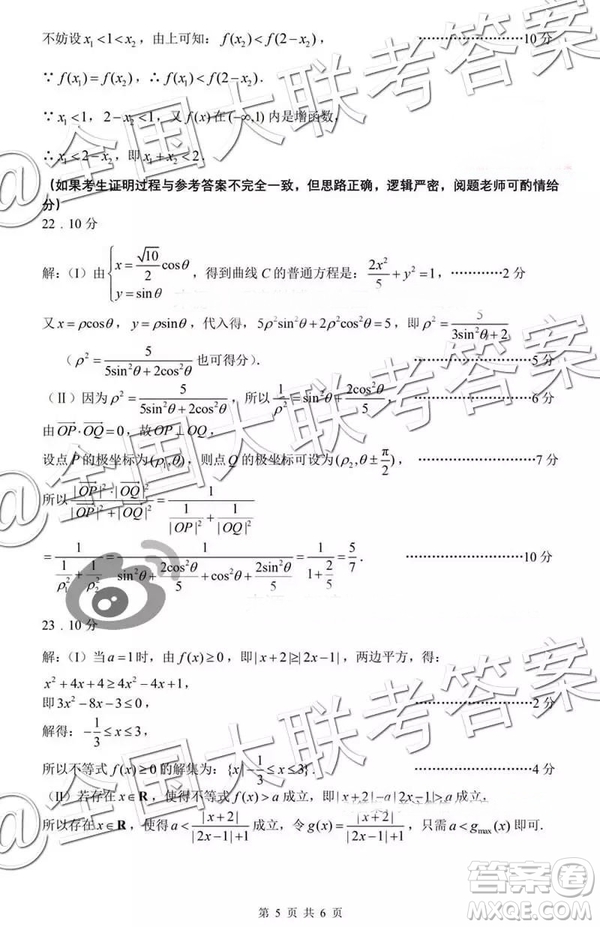 不妨设 x₁<1<x₂，由上可知：f(x₂)<f(2−x₂)， ··················10 分
∵ f(x₁)=f(x₂)，∴ f(x₁)<f(2−x₂)．
∵ x₁<1，2−x₂<1，又 f(x) 在 (−∞,1) 内是增函数，
∴ x₁<2−x₂，即 x₁+x₂<2．
（如果考生证明过程与参考答案不完全一致，但思路正确，逻辑严密，阅题老师可酌情给
分）
22．10 分
解：（I）由 {x=√10/2 cosθ y=sinθ，得到曲线 C 的普通方程是：2x²/5+y²=1，············2 分
又 x=ρcosθ，y=ρsinθ，代入得，5ρ²sin²θ+2ρ²cos²θ=5，即 ρ²=5/(3sin²θ+2)
（ρ²=5/(5sin²θ+2cos²θ) 也可得分）． ··················5 分
（II）因为 ρ²=5/(5sin²θ+2cos²θ)，所以 1/ρ²=sin²θ+2cos²θ/5， ··················6 分
由 OP·OQ=0，故 OP⊥OQ，
设点 P 的极坐标为 (ρ₁,θ)，则点 Q 的极坐标可设为 (ρ₂,θ±π/2)， ··················7 分
所以 |OP|²·|OQ|²/(|OP|²+|OQ|²)=1/(1/|OP|²+1/|OQ|²)
=1/(1/ρ₁²+1/ρ₂²)=1/(sin²θ+2cos²θ/5+cos²θ+2sin²θ/5)=1/(1+2/5)=5/7． ··················10 分
23．10 分
解：（I）当 a=1 时，由 f(x)≥0，即 |x+2|≥|2x−1|，两边平方，得：
x²+4x+4≥4x²−4x+1，
即 3x²−8x−3≤0， ··················2 分
解得：−1/3≤x≤3，
所以不等式 f(x)≥0 的解集为：{x|−1/3≤x≤3}． ··················4 分
（II）若存在 x∈R，使得不等式 f(x)>a 成立，即 |x+2|−a|2x−1|>a 成立，
所以存在 x∈R，使得 a<|x+2|/(|2x−1|+1) 成立，令 g(x)=|x+2|/(|2x−1|+1)，只需 a<gmax(x) 即可．
第 5 页 共 6 页
@全国大联考答案
@全国大联考答案
@全国大联考答案
答案圈
MXQE.COM